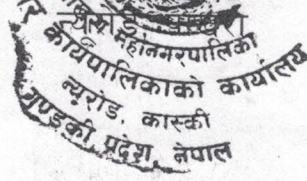 महानगरपालिका
कार्यपालिकाको कार्यालय
न्यूरोड, कास्की
गण्डकी प्रदेश, नेपाल